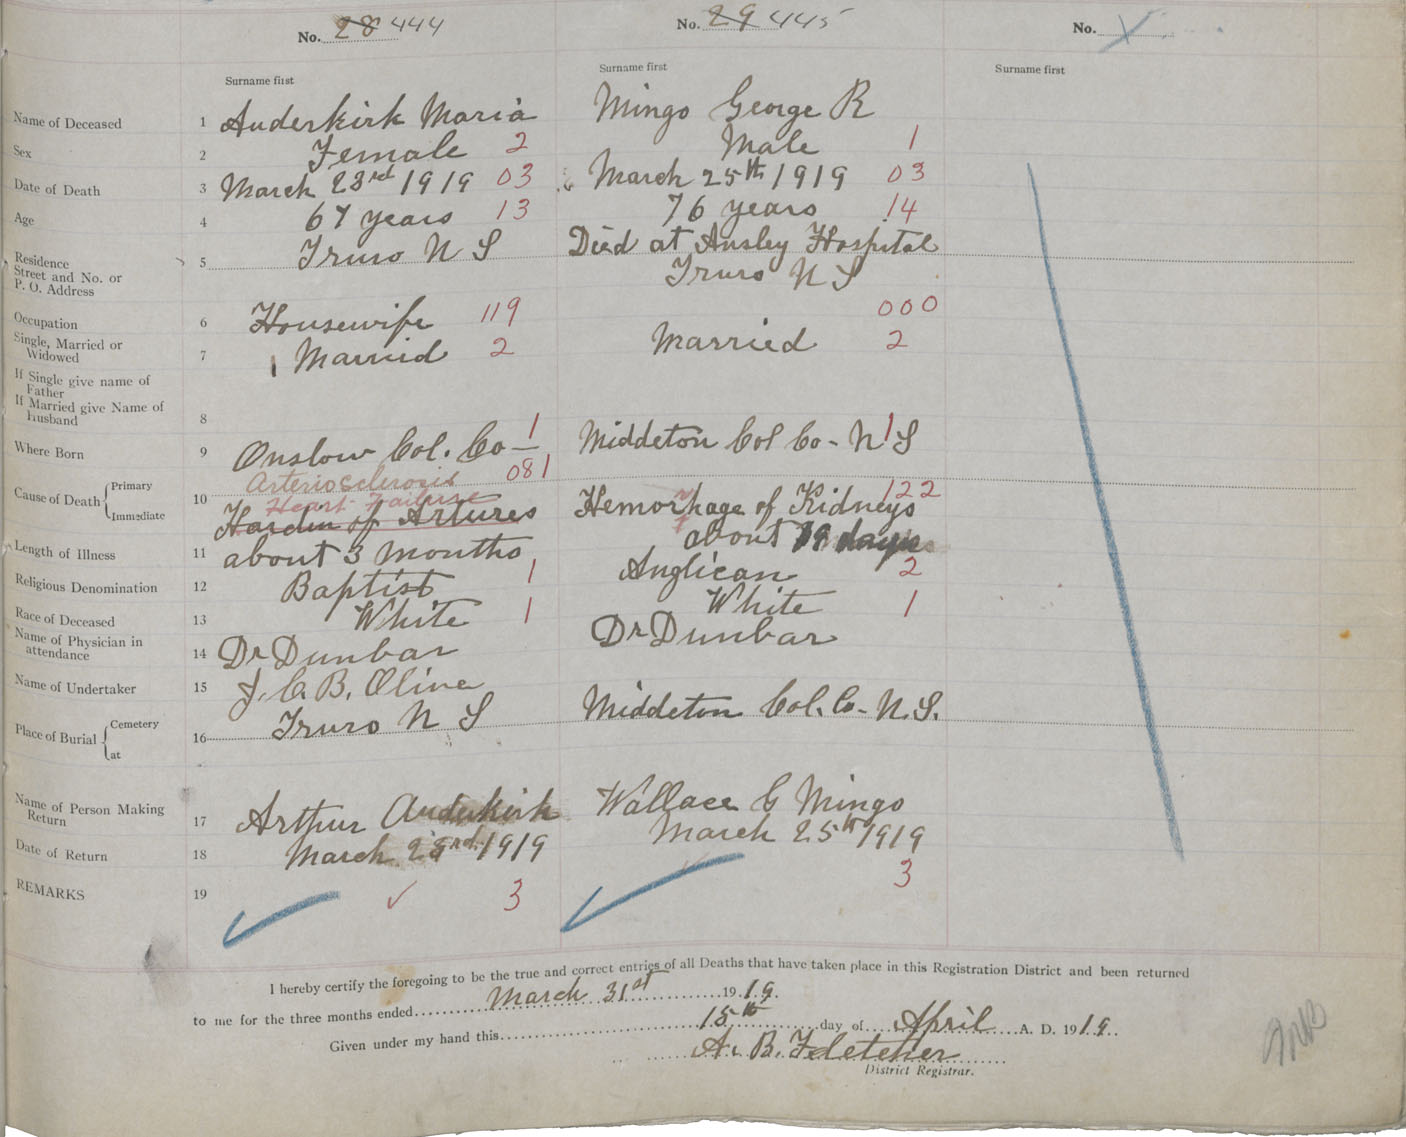 No. 28 444
No. 29 445
No.
Surname first
Surname first
Surname first
Name of Deceased 1 Auderkirk Maria Mingo George R
Sex 2 Female 2 Male 1
Date of Death 3 March 23rd 1919 03 March 25th 1919 03
Age 4 67 years 13 76 years 14
Residence Street and No. or P. O. Address 5 Truro N S Died at Ansley Hospital
Truro N S
Occupation 6 Housewife 119 000
Single, Married or Widowed 7 Married 2 Married 2
If Single give name of Father
If Married give Name of Husband 8
Where Born 9 Onslow Col. Co - 1 Middeton Col Co - N S 1
Cause of Death { Primary Arteriosclerosis 081
Immediate 10 Heart Failure
Harden of Artures Hemorhage of Kidneys 122
Length of Illness 11 about 3 months about days
Religious Denomination 12 Baptist 1 Anglican 2
Race of Deceased 13 White 1 White 1
Name of Physician in attendance 14 Dr Dunbar Dr Dunbar
Name of Undertaker 15 J. C. B. Olive
Place of Burial { Cemetery 16 Truro N S Middeton Col. Co - N. S.
at
Name of Person Making Return 17 Arthur Auderkirk Wallace G Mingo
Date of Return 18 March 23rd 1919 March 25th 1919
REMARKS 19 3 3
I hereby certify the foregoing to be the true and correct entries of all Deaths that have taken place in this Registration District and been returned
to me for the three months ended March 31st 1919.
Given under my hand this 15th day of April A. D. 1919.
A. B. Fletcher
District Registrar.